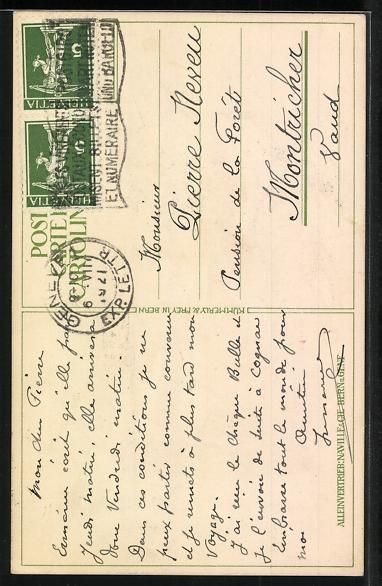 HELVETIA 5
HELVETIA 5
ET NUMERAIRE
POST
CARTE
CARTOLIN
GENÈVE
EXP. LETTR.
Monsieur
Pierre Neveu
Pension de la Forêt
Montricher
Vaud
KÜMMERLY & FREY IN BERN
Mon cher Pierre
écrit qu'elle par
Jeudi matin elle arrivera
donc Vendredi matin.
Dans ces conditions je ne
peux partir comme convenu
et je remets à plus tard mon
voyage.
J'ai reçu le chèque Balle &
Je l'envoie de suite à Cognac
Embrasse tout le monde pour
moi
ALLEINVERTRIEB: NAVILLE & CIE BERN & GENF